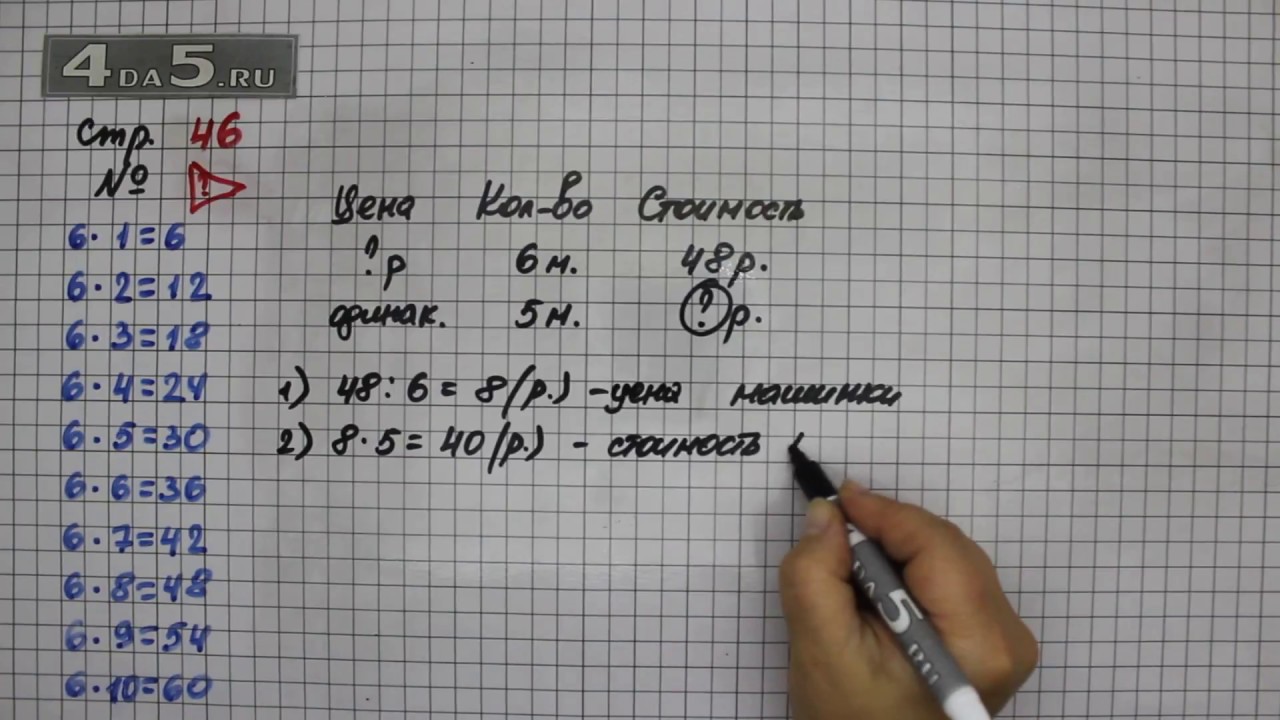 4DA5.RU
Стр. 46
№ ?
6·1=6
6·2=12
6·3=18
6·4=24
6·5=30
6·6=36
6·7=42
6·8=48
6·9=54
6·10=60
Цена Кол-во Стоимость
? р 6 м. 48 р.
одинак. 5 м. ? р.
1) 48:6=8(р.) -цена машинки
2) 8·5=40(р.) - стоимость
DA5.RU